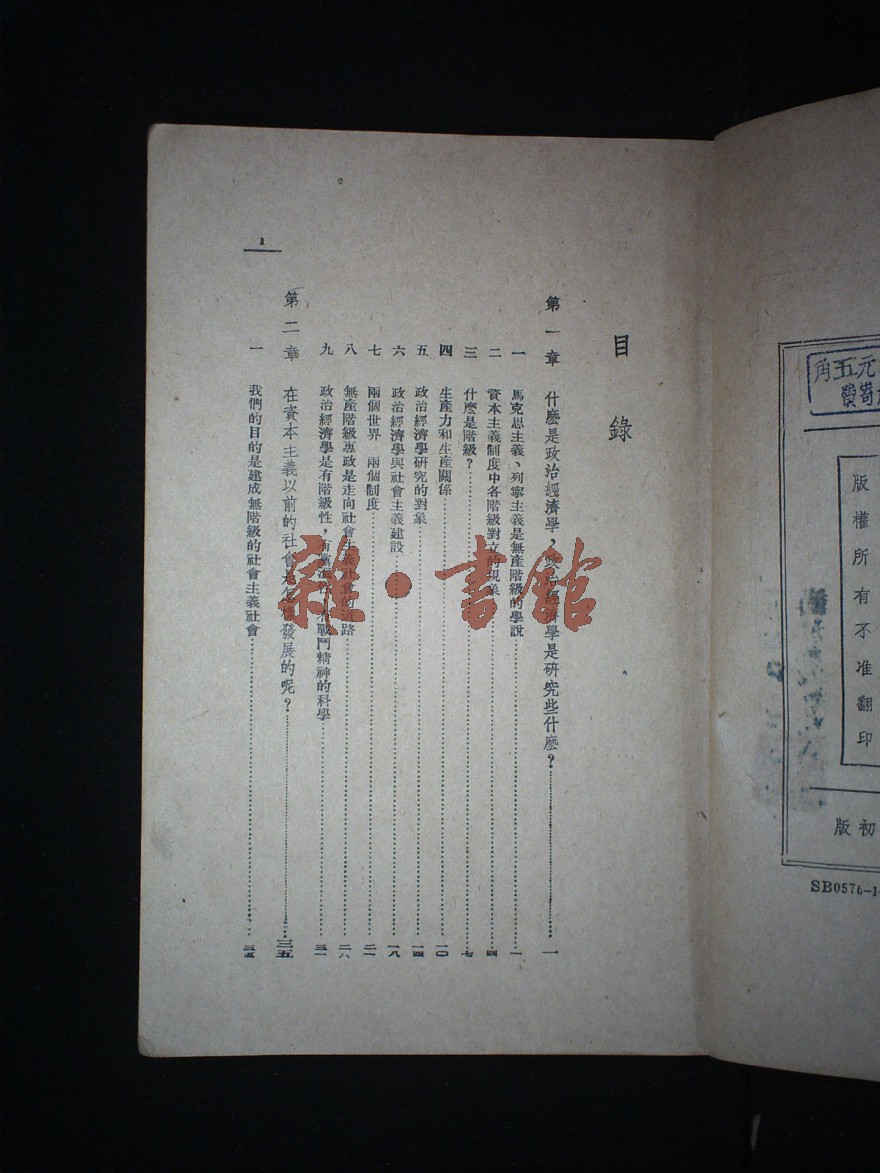 目錄
第一章 什麽是政治經濟學，政治經濟學是研究些什麽？…………一
一 馬克思主義、列寧主義是無產階級的學說…………一
二 資本主義制度中各階級對立的現象…………四
三 什麽是階級？…………七
四 生產力和生產關係…………一〇
五 政治經濟學研究的對象…………一四
六 政治經濟學與社會主義建設…………一八
七 兩個世界 兩個制度…………二一
八 無產階級專政是走向社會主義社會的道路…………二六
九 政治經濟學是有階級性，有黨派性，有戰鬥精神的科學…………三一
第二章 在資本主義以前的社會是怎樣發展的呢？…………三五
一 我們的目的是建成無階級的社會主義社會…………三五
1
雜·書館
元五角
版權所有不准翻印
初版
SB0576-1